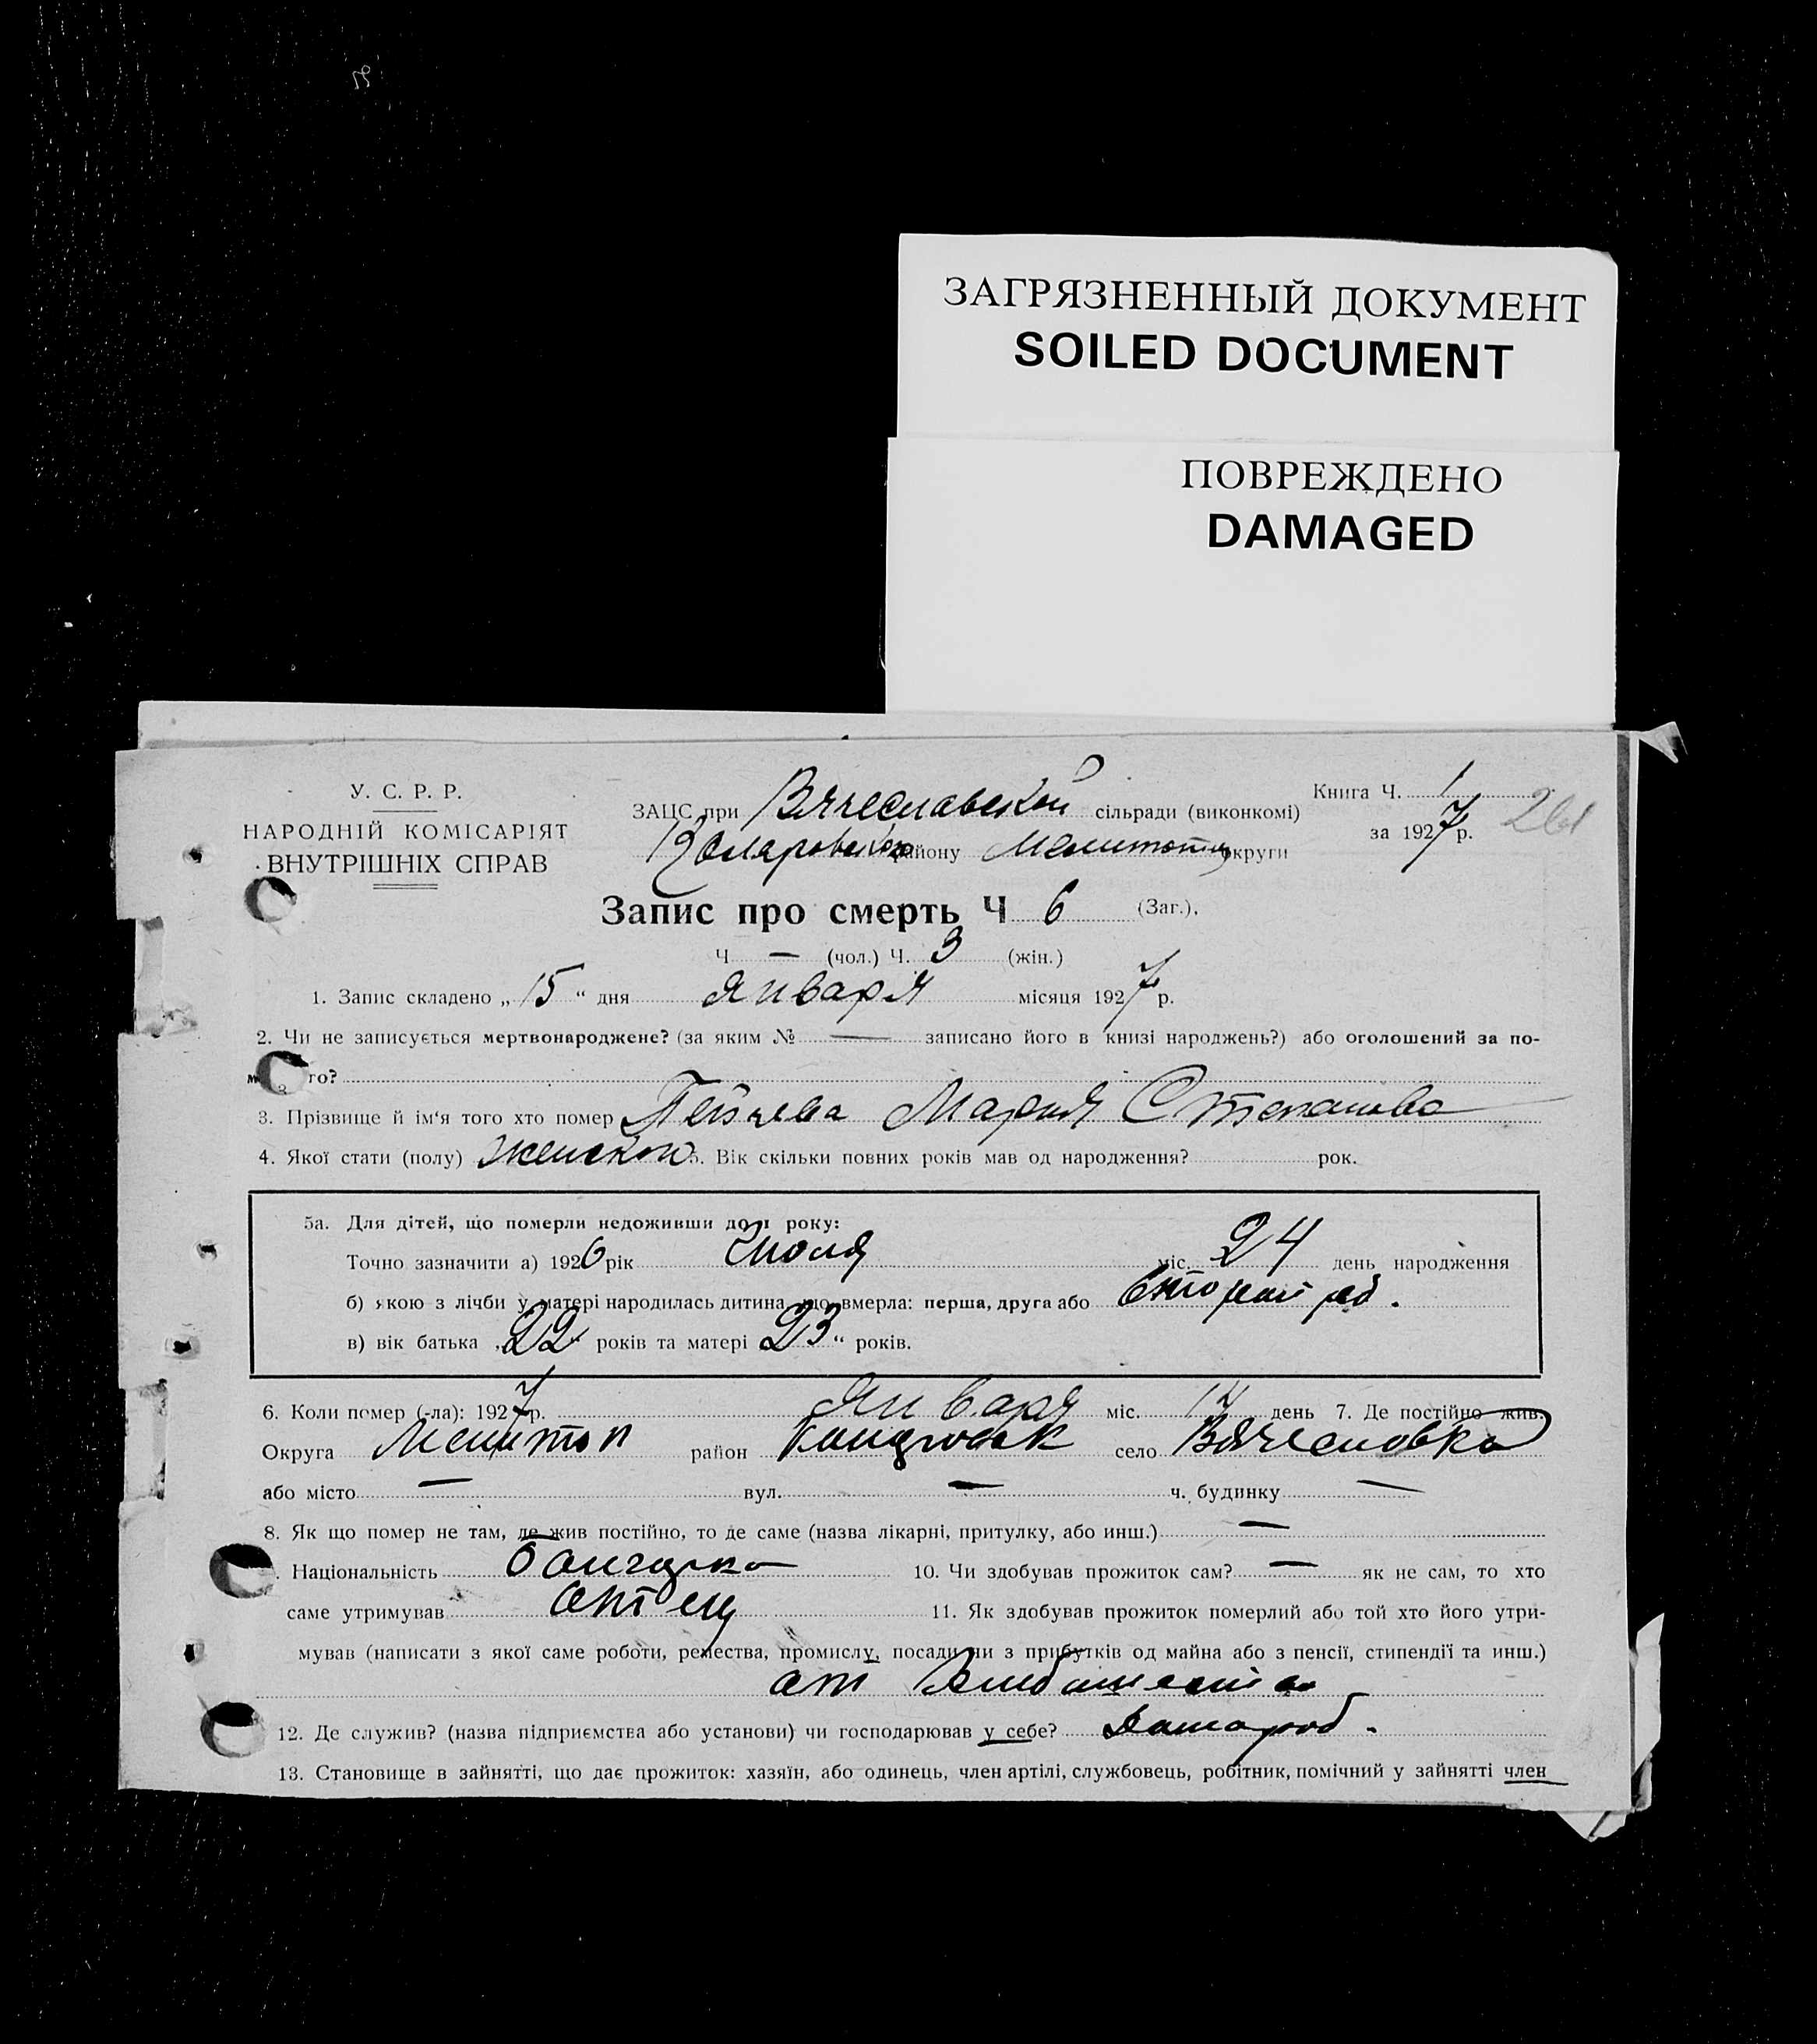 ЗАГРЯЗНЕННЫЙ ДОКУМЕНТ
SOILED DOCUMENT
ПОВРЕЖДЕНО
DAMAGED
У. С. Р. Р.
НАРОДНІЙ КОМІСАРІЯТ
ВНУТРІШНІХ СПРАВ
ЗАЦС при Вячеславской сільради (виконкомі)
району округи
Книга Ч. 1
за 1927 р. 261
Запис про смерть Ч 6 (Заг.).
Ч — (чол.) Ч. 3 (жін.)
1. Запис складено „ 15 “ дня Января місяця 1927 р.
2. Чи не записується мертвонароджене? (за яким № — записано його в книзі народжень?) або оголошений за по-
го?
3. Прізвище й ім‘я того хто помер Мария Степанова
4. Якої стати (полу) женской 5. Вік скільки повних років мав од народження? рок.
5а. Для дітей, що померли недоживши до 1 року:
Точно зазначити а) 1926 рік Июля міс. 24 день народження
б) якою з лічби у матері народилась дитина, що вмерла: перша, друга або
в) вік батька „22“ років та матері „23“ років.
6. Коли помер (-ла): 1927 р. Января міс. день 7. Де постійно жив:
Округа Мелитоп район село Вячеславка
або місто — вул. — ч. будинку —
8. Як що помер не там, де жив постійно, то де саме (назва лікарні, притулку, або инш.) —
Національність болгарка 10. Чи здобував прожиток сам? — як не сам, то хто
саме утримував отец 11. Як здобував прожиток померлий або той хто його утри-
мував (написати з якої саме роботи, ремества, промислу, посади чи з прибутків од майна або з пенсії, стипендії та инш.)
от
12. Де служив? (назва підприємства або установи) чи господарював у себе?
13. Становище в зайнятті, що дає прожиток: хазяїн, або одинець, член артілі, службовець, робітник, помічний у зайнятті член